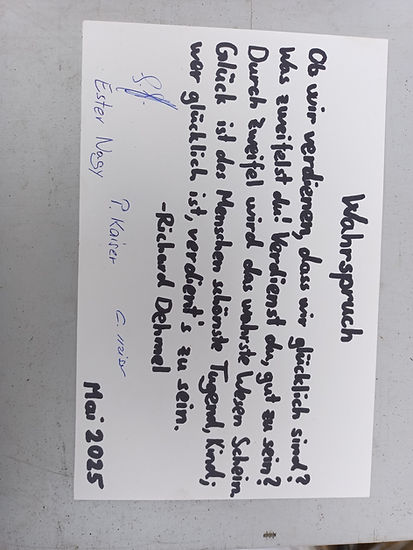 Wahrspruch
Ob wir verdienen, dass wir glücklich sind?
Was zweifelst du! Verdienst du, gut zu sein?
Durch Zweifel wird das wahrste Wesen Schein.
Glück ist des Menschen schönste Tugend, Kind;
wer glücklich ist, verdient's zu sein.
-Richard Dehmel
Ester Nagy
P. Kaiser
Mai 2025